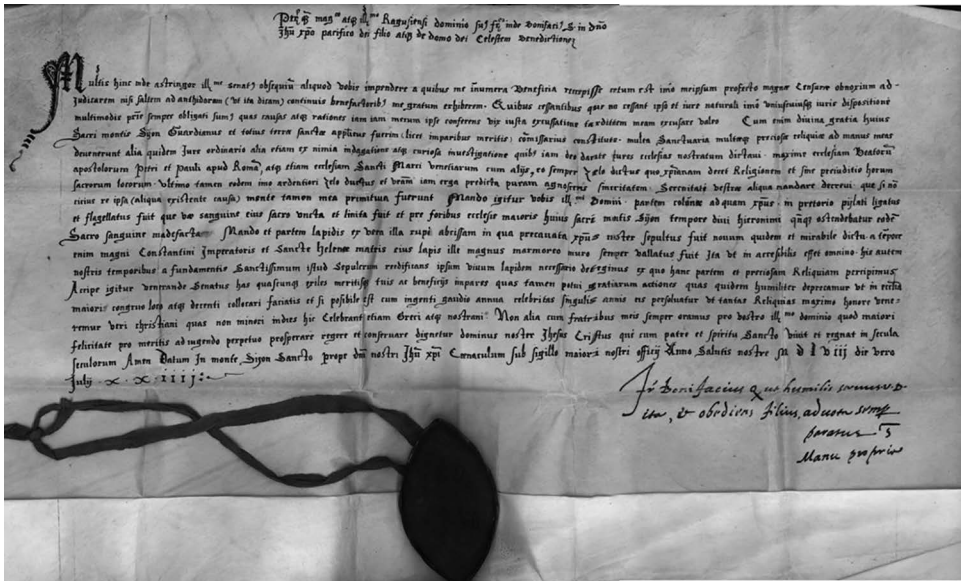 mag.co atq. ill.mo Ragusiensi dominio inde Bonifaci, S. in dño
Jhũ xpo pacifico dei filio atq; de domo dei Celestem Benedictionez
Multis hinc inde astringor ill.me senat, obsequiũ aliquod vobis impendere a quibus me inumera Beneficia recepisse certum est imò meipsum profecto magnae Censurae obnoxium ad-
Judicarem nisi saltem ad anthidorum (ut ita dicam) continuis benefactorib, me gratum exhiberem. Quibus cessantibus que no cessant ipso et iure naturali imò uniuscuiusq; iuris dispositione
multimodis semper obligati sum, quas causas atq; rationes iam iam mecum ipse conferens vix iusta excusatione tarditatem meam excusare valeo. Cum enim divina gratia huius
Sacri montis Sijon Guardianus et totius terrae sanctae applicus fuerim (licet imparibus meritis) comissarius constitutus. multa Sanctuaria multaeq; preciosae reliquiae ad manus meas
devenerunt alia quidem Jure ordinario alia etiam ex nimia indagatione atq; curiosa investigatione quibs iam deo dicatas ecclesias nostratum ditavi. maxime ecclesiam Beatorum
apostolorum Petri et Pauli apud Romã, atq; etiam ecclesiam Sancti Marci Venetiarum cum alijs, eo semper zelo ductus quo xpianam decet Religionem et sine preiuditio horum
sacrorum locorum. Ultimo tamen eodem imo ardentiori zelo ductus et vram iam erga predicta puram agnoscens sinceritatem. Serenitati vestrae aliqua mandare decrevi que si nõ
citius re ipsa (aliqua existente causa) mente tamen mea primitiva fuerunt. Mando igitur vobis ill.mi Domini. partem colonae ad quam xpus. in pretorio pylati ligatus
et flagellatus fuit que sanguine eius sacro uncta et linita fuit et pre foribus ecclesie maioris huius sacri mõtis Sijon tempore divi hieronimi ostendebatur eodẽ
Sacro sanguine madefacta. Mando et partem lapidis ex vera illa rupe abscissam in qua precavata xpus noster sepultus fuit novum quidem et mirabile dictu a tẽpore
enim magni Constantini Imperatoris et Sanctae Helenae matris eius lapis ille magnus marmoreo muro semper vallatus fuit Ita ut in accesibilis esset omnino. his autem
nostris temporibus a fundamentis Sanctissimum istud Sepulcrum reedificans ipsum vivum lapidem necessario deteginus ex quo hanc partem et preciosam Reliquiam percipimus
Accipe igitur venerande Senatus has quascunq; exiles meritisq; tuis ac beneficijs impares quas tamen potui gratiarum actiones quas quidem humiliter deprecamur ut in ecclia
maiori. congruo loco atq; decenti collocari faciatis et si posibile est cum ingenti gaudio annua celebritas singulis annis eis persoluatur ut tantas Reliquias maximo honore vene-
remur veri christiani quas non minori indies hic Celebrant etiam Greci atq; nostrani. Non alia cum fratribus meis semper oramus pro vostro ill.mo dominio quod maiori
felicitate pro meritis adiugendo perpetuo prosperare regere et conservare dignetur dominus noster Jhesus Cristus qui cum patre et spiritu Sancto vivit et regnat in secula
seculorum Amen Datum In monte Sijon Sancto prope dñi nostri Jhũ xpi Cenaculum sub sigillo maiori nostri officij Anno Salutis nostre M D L V iij die vero
Julij . x . x . iiij :
Fr Bonifacius que humilis
ita, & obediens filius, ad vota semp
paratus
Manu propria